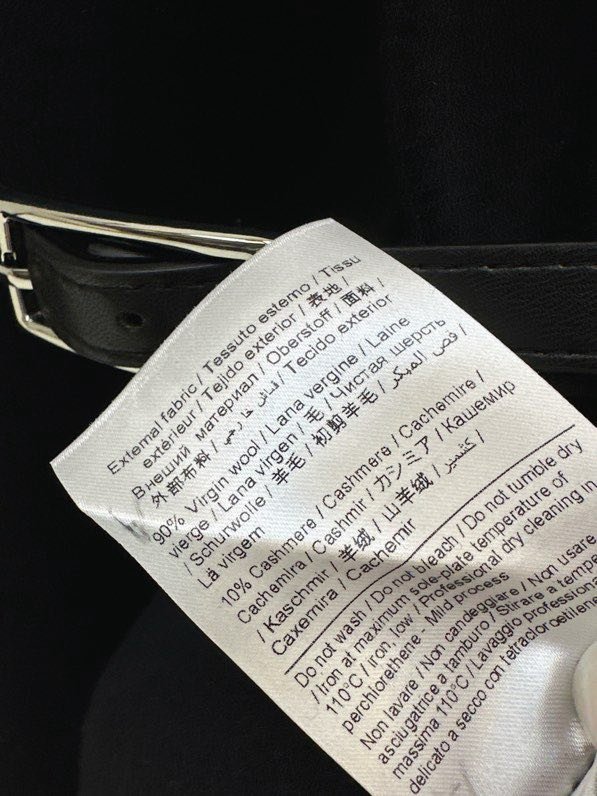 External fabric / Tessuto esterno / Tissu
extérieur / Tejido exterior / 表地 /
Внеший материал / Oberstoff / 面料 /
外部布料 / قماش خارجي / Tecido exterior
90% Virgin wool / Lana vergine / Laine
vierge / Lana virgen / 毛 / Чистая шерсть
/ Schurwolle / 羊毛 / 初剪羊毛 / قص المبكر /
Lã virgem
10% Cashmere / Cashmere / Cachemire /
Cachemira / Cashmir / カシミア / Кашемир
/ Kaschmir / 羊绒 / 山羊绒 / كشمير /
Caxemira / Cachemir
Do not wash / Do not bleach / Do not tumble dry
/ Iron at maximum sole-plate temperature of
110°C / Iron, low / Professional dry cleaning in
perchlorethene - Mild process
Non lavare / Non candeggiare / Non usare
asciugatrice a tamburo / Stirare a temp
massima 110°C / Lavaggio professiona
delicato a secco con tetracloroetilene